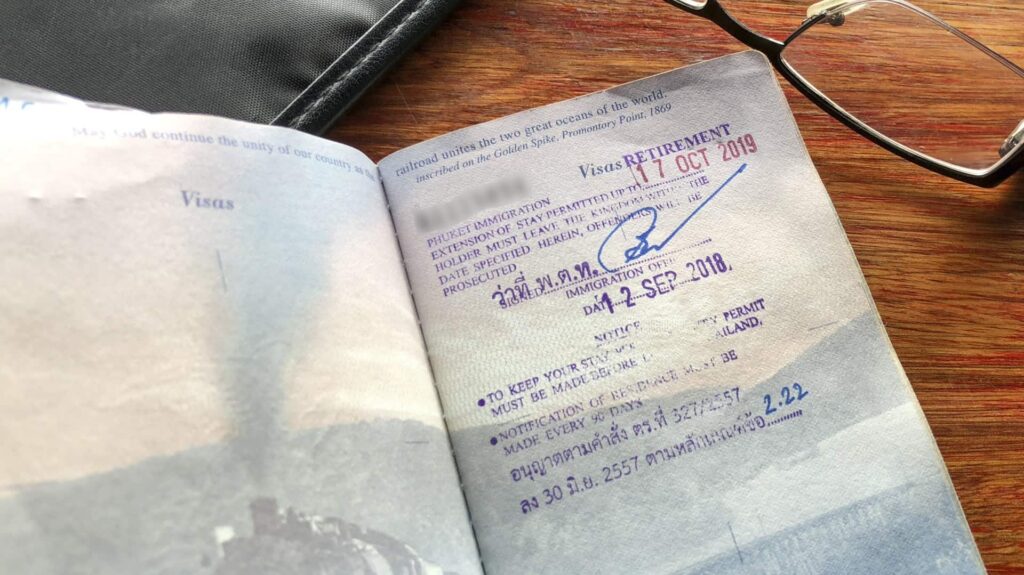 May God continue the unity of our country as the
Visas
railroad unites the two great oceans of the world.
inscribed on the Golden Spike, Promontory Point, 1869
Visas
RETIREMENT
17 OCT 2019
PHUKET IMMIGRATION
EXTENSION OF STAY PERMITTED UP TO
HOLDER MUST LEAVE THE KINGDOM WITHIN THE
DATE SPECIFIED HEREIN, OFFENDERS WILL BE
PROSECUTED.
ว่าที่ พ.ต.ท.
SIGNED
IMMIGRATION
12 SEP 2018
NOTICE
PERMIT
TO KEEP YOUR STAY
MUST BE MADE BEFORE
NOTIFICATION OF RESIDENCE MUST BE
MADE EVERY 90 DAYS
อนุญาตตามคำสั่ง ตร.ที่ 327/2557
ลง 30 มิ.ย. 2557 ตามหลักเกณฑ์ข้อ 2.22